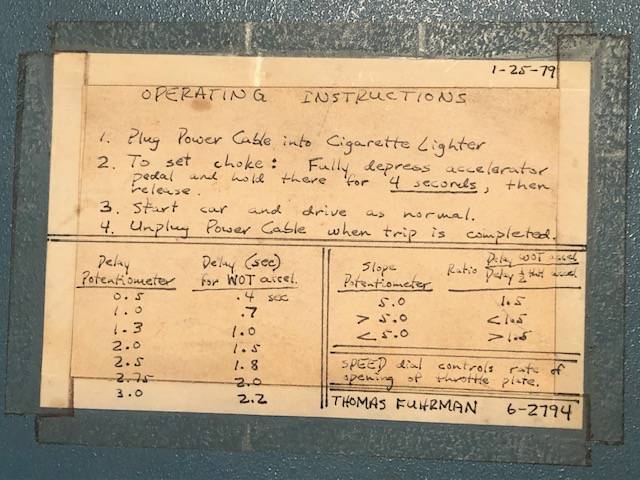 1-25-79
OPERATING INSTRUCTIONS
1. Plug Power Cable into Cigarette Lighter
2. To set choke: Fully depress accelerator
pedal and hold there for 4 seconds, then
release.
3. Start car and drive as normal.
4. Unplug Power Cable when trip is completed.
Delay Delay (sec)
Potentiometer for WOT accel.
0.5 .4 sec
1.0 .7
1.3 1.0
2.0 1.5
2.5 1.8
2.75 2.0
3.0 2.2
Slope Ratio Delay WOT accel
Potentiometer Delay ½ thrt accel
5.0 1.5
> 5.0 < 1.5
< 5.0 > 1.5
SPEED dial controls rate of
opening of throttle plate.
THOMAS FUHRMAN 6-2794